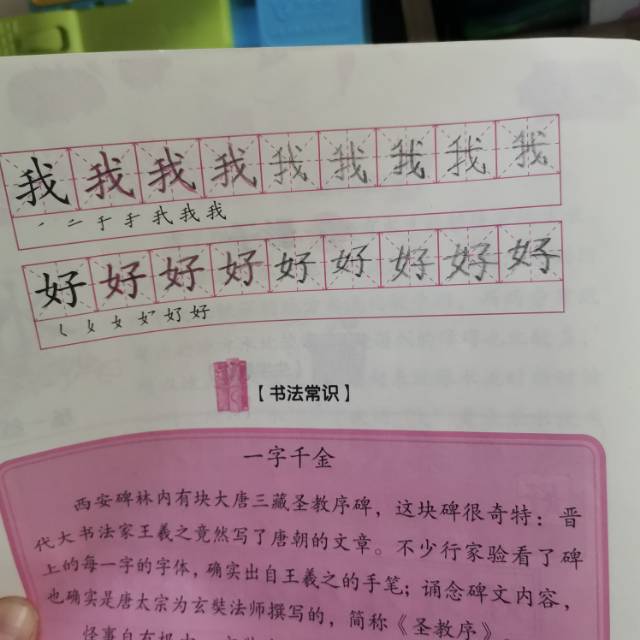 我我我我我我我我我
㇒ 二 于 手 我 我 我
好好好好好好好好好
𡿨 乆 女 好 好
【书法常识】
一字千金
西安碑林内有块大唐三藏圣教序碑，这块碑很奇特：晋
代大书法家王羲之竟然写了唐朝的文章。不少行家验看了碑
上的每一字的字体，确实出自王羲之的手笔；诵念碑文内容，
也确实是唐太宗为玄奘法师撰写的，简称《圣教序》。